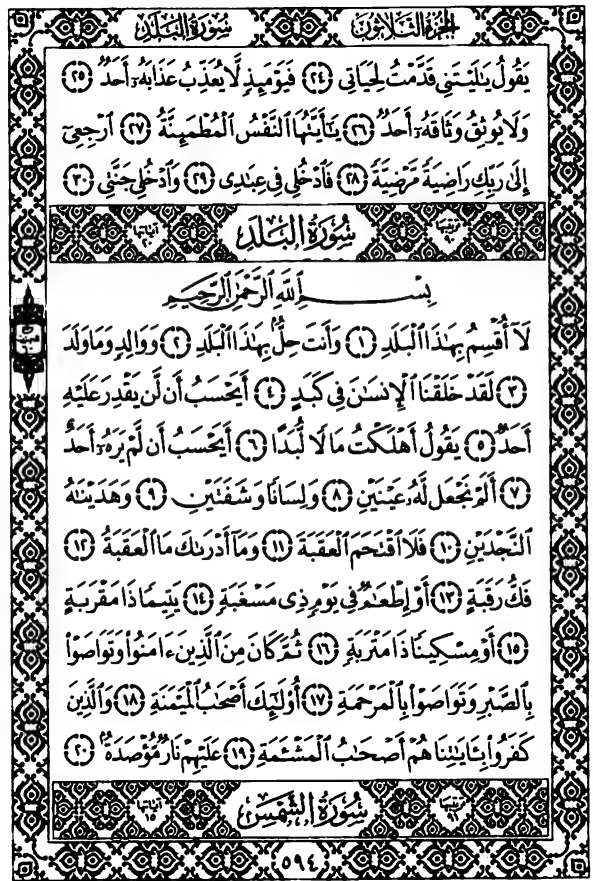 سُورَةُ البَلَدِ الجُزْءُ الثَّلَاثُونَ
يَقُولُ يَٰلَيْتَنِي قَدَّمْتُ لِحَيَاتِي ۝٢٤ فَيَوْمَئِذٍ لَّا يُعَذِّبُ عَذَابَهُۥٓ أَحَدٌ ۝٢٥
وَلَا يُوثِقُ وَثَاقَهُۥٓ أَحَدٌ ۝٢٦ يَٰٓأَيَّتُهَا ٱلنَّفْسُ ٱلْمُطْمَئِنَّةُ ۝٢٧ ٱرْجِعِىٓ
إِلَىٰ رَبِّكِ رَاضِيَةً مَّرْضِيَّةً ۝٢٨ فَٱدْخُلِى فِى عِبَٰدِى ۝٢٩ وَٱدْخُلِى جَنَّتِى ۝٣٠
ترتيبها ٩٠ سُورَةُ البَلَدِ آياتها ٢٠
بِسْمِ ٱللَّهِ ٱلرَّحْمَٰنِ ٱلرَّحِيمِ
لَآ أُقْسِمُ بِهَٰذَا ٱلْبَلَدِ ۝١ وَأَنتَ حِلٌّۢ بِهَٰذَا ٱلْبَلَدِ ۝٢ وَوَالِدٍ وَمَا وَلَدَ
۝٣ لَقَدْ خَلَقْنَا ٱلْإِنسَٰنَ فِى كَبَدٍ ۝٤ أَيَحْسَبُ أَن لَّن يَقْدِرَ عَلَيْهِ
أَحَدٌ ۝٥ يَقُولُ أَهْلَكْتُ مَالًا لُّبَدًا ۝٦ أَيَحْسَبُ أَن لَّمْ يَرَهُۥٓ أَحَدٌ
۝٧ أَلَمْ نَجْعَل لَّهُۥ عَيْنَيْنِ ۝٨ وَلِسَانًا وَشَفَتَيْنِ ۝٩ وَهَدَيْنَٰهُ
ٱلنَّجْدَيْنِ ۝١٠ فَلَا ٱقْتَحَمَ ٱلْعَقَبَةَ ۝١١ وَمَآ أَدْرَىٰكَ مَا ٱلْعَقَبَةُ ۝١٢
فَكُّ رَقَبَةٍ ۝١٣ أَوْ إِطْعَٰمٌ فِى يَوْمٍ ذِى مَسْغَبَةٍ ۝١٤ يَتِيمًا ذَا مَقْرَبَةٍ
۝١٥ أَوْ مِسْكِينًا ذَا مَتْرَبَةٍ ۝١٦ ثُمَّ كَانَ مِنَ ٱلَّذِينَ ءَامَنُوا۟ وَتَوَاصَوْا۟
بِٱلصَّبْرِ وَتَوَاصَوْا۟ بِٱلْمَرْحَمَةِ ۝١٧ أُو۟لَٰٓئِكَ أَصْحَٰبُ ٱلْمَيْمَنَةِ ۝١٨ وَٱلَّذِينَ
كَفَرُوا۟ بِـَٔايَٰتِنَا هُمْ أَصْحَٰبُ ٱلْمَشْـَٔمَةِ ۝١٩ عَلَيْهِمْ نَارٌ مُّؤْصَدَةٌۢ ۝٢٠
ترتيبها ٩١ سُورَةُ الشَّمْسِ آياتها ١٥
٥٩٤